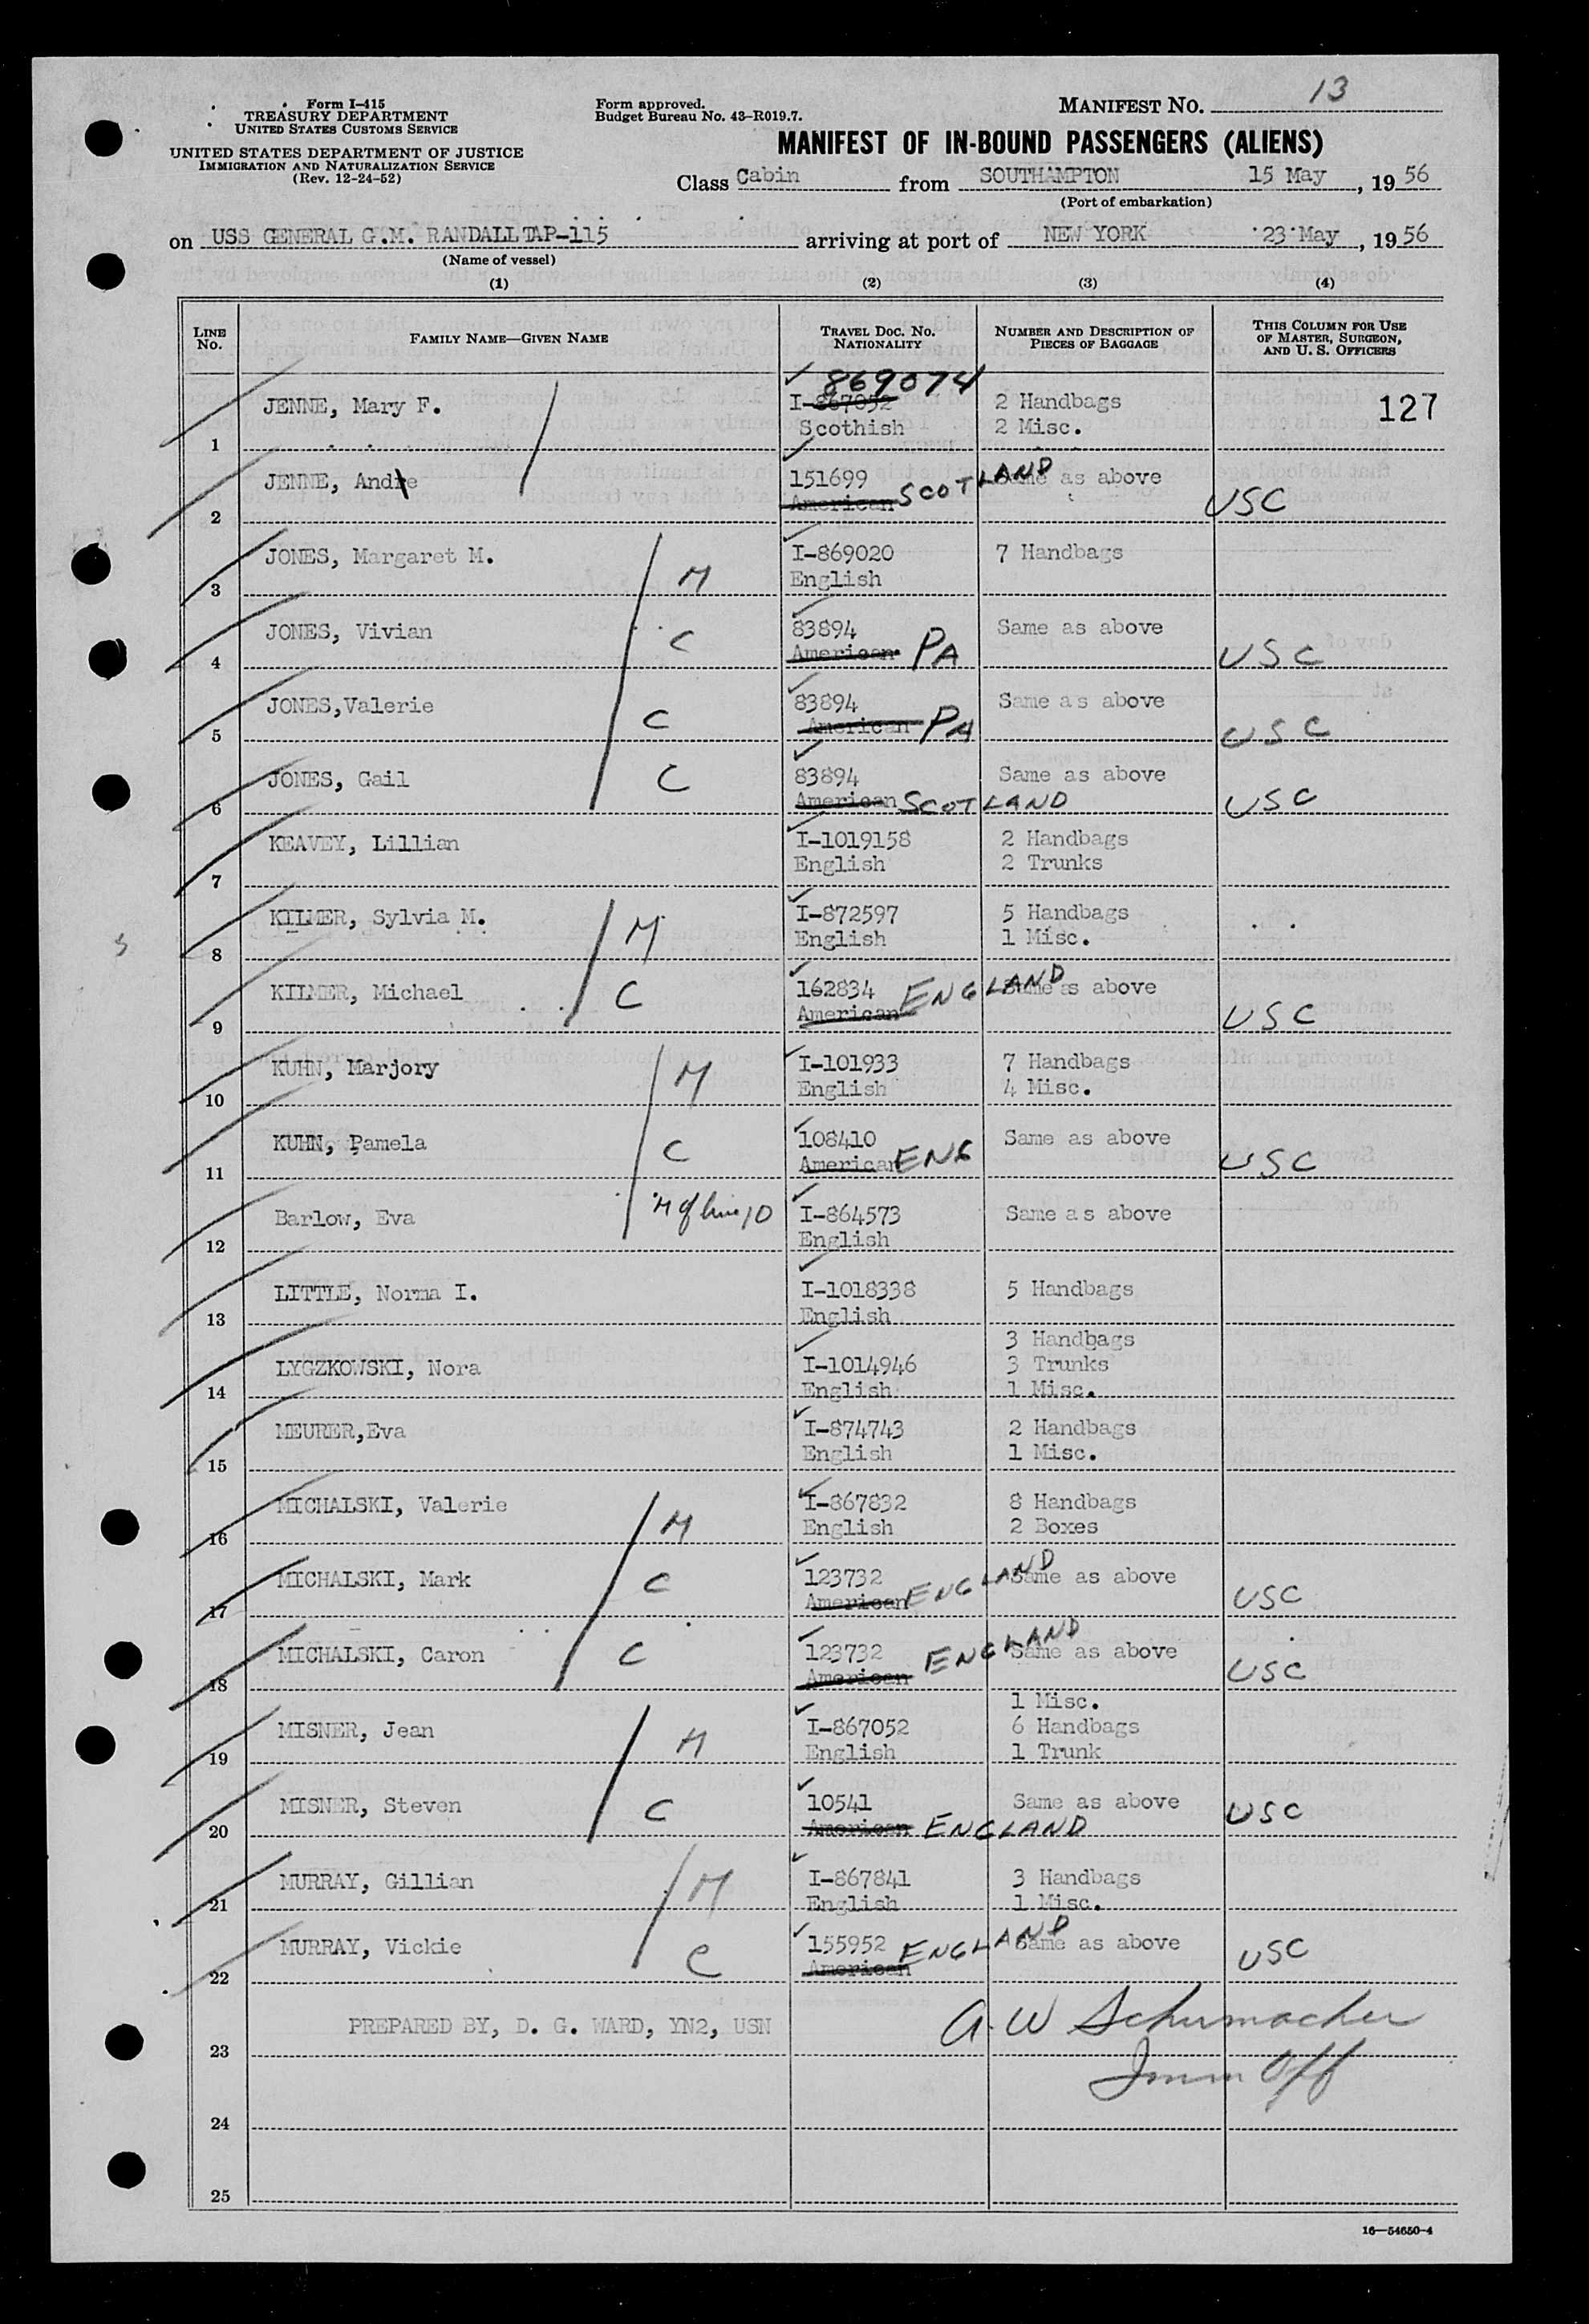 Form I-415
TREASURY DEPARTMENT
UNITED STATES CUSTOMS SERVICE
UNITED STATES DEPARTMENT OF JUSTICE
IMMIGRATION AND NATURALIZATION SERVICE
(Rev. 12-24-52)
Form approved.
Budget Bureau No. 43-R019.7.
MANIFEST NO. 13
MANIFEST OF IN-BOUND PASSENGERS (ALIENS)
Class Cabin from SOUTHAMPTON 15 May, 19 56
(Port of embarkation)
on USS GENERAL G.M. RANDALL TAP-115 arriving at port of NEW YORK 23 May, 19 56
(Name of vessel)
(1) (2) (3) (4)
LINE NO. FAMILY NAME—GIVEN NAME TRAVEL DOC. NO. NATIONALITY NUMBER AND DESCRIPTION OF PIECES OF BAGGAGE THIS COLUMN FOR USE OF MASTER, SURGEON, AND U. S. OFFICERS
869074
JENNE, Mary F. I-867052 2 Handbags 127
1 Scothish 2 Misc.
JENNE, Andre 151699 SCOTLAND Same as above
2 American USC
JONES, Margaret M. I-869020 7 Handbags
3 M English
JONES, Vivian C 83894 Same as above
4 American PA USC
JONES,Valerie 83894 Same as above
5 C American PA USC
JONES, Gail C 83894 Same as above
6 American SCOTLAND USC
KEAVEY, Lillian I-1019158 2 Handbags
7 English 2 Trunks
KILMER, Sylvia M. M I-872597 5 Handbags
8 English 1 Misc.
KILMER, Michael C 162834 ENGLAND Same as above
9 American USC
KUHN, Marjory M I-101933 7 Handbags
10 English 4 Misc.
KUHN, Pamela C 108410 Same as above
11 American ENG USC
Barlow, Eva M of line 10 I-864573 Same as above
12 English
LITTLE, Norma I. I-1018338 5 Handbags
13 English
3 Handbags
LYGZKOWSKI, Nora I-1014946 3 Trunks
14 English 1 Misc.
MEURER,Eva I-874743 2 Handbags
15 English 1 Misc.
MICHALSKI, Valerie I-867832 8 Handbags
16 M English 2 Boxes
MICHALSKI, Mark C 123732 Same as above
17 American ENGLAND USC
MICHALSKI, Caron C 123732 ENGLAND Same as above
18 American USC
1 Misc.
MISNER, Jean M I-867052 6 Handbags
19 English 1 Trunk
MISNER, Steven C 10541 Same as above USC
20 American ENGLAND
MURRAY, Gillian M I-867841 3 Handbags
21 English 1 Misc.
MURRAY, Vickie C 155952 ENGLAND Same as above USC
22 American
PREPARED BY, D. G. WARD, YN2, USN A. W Schumacher
23
Imm Off
24
25
16—54650-4